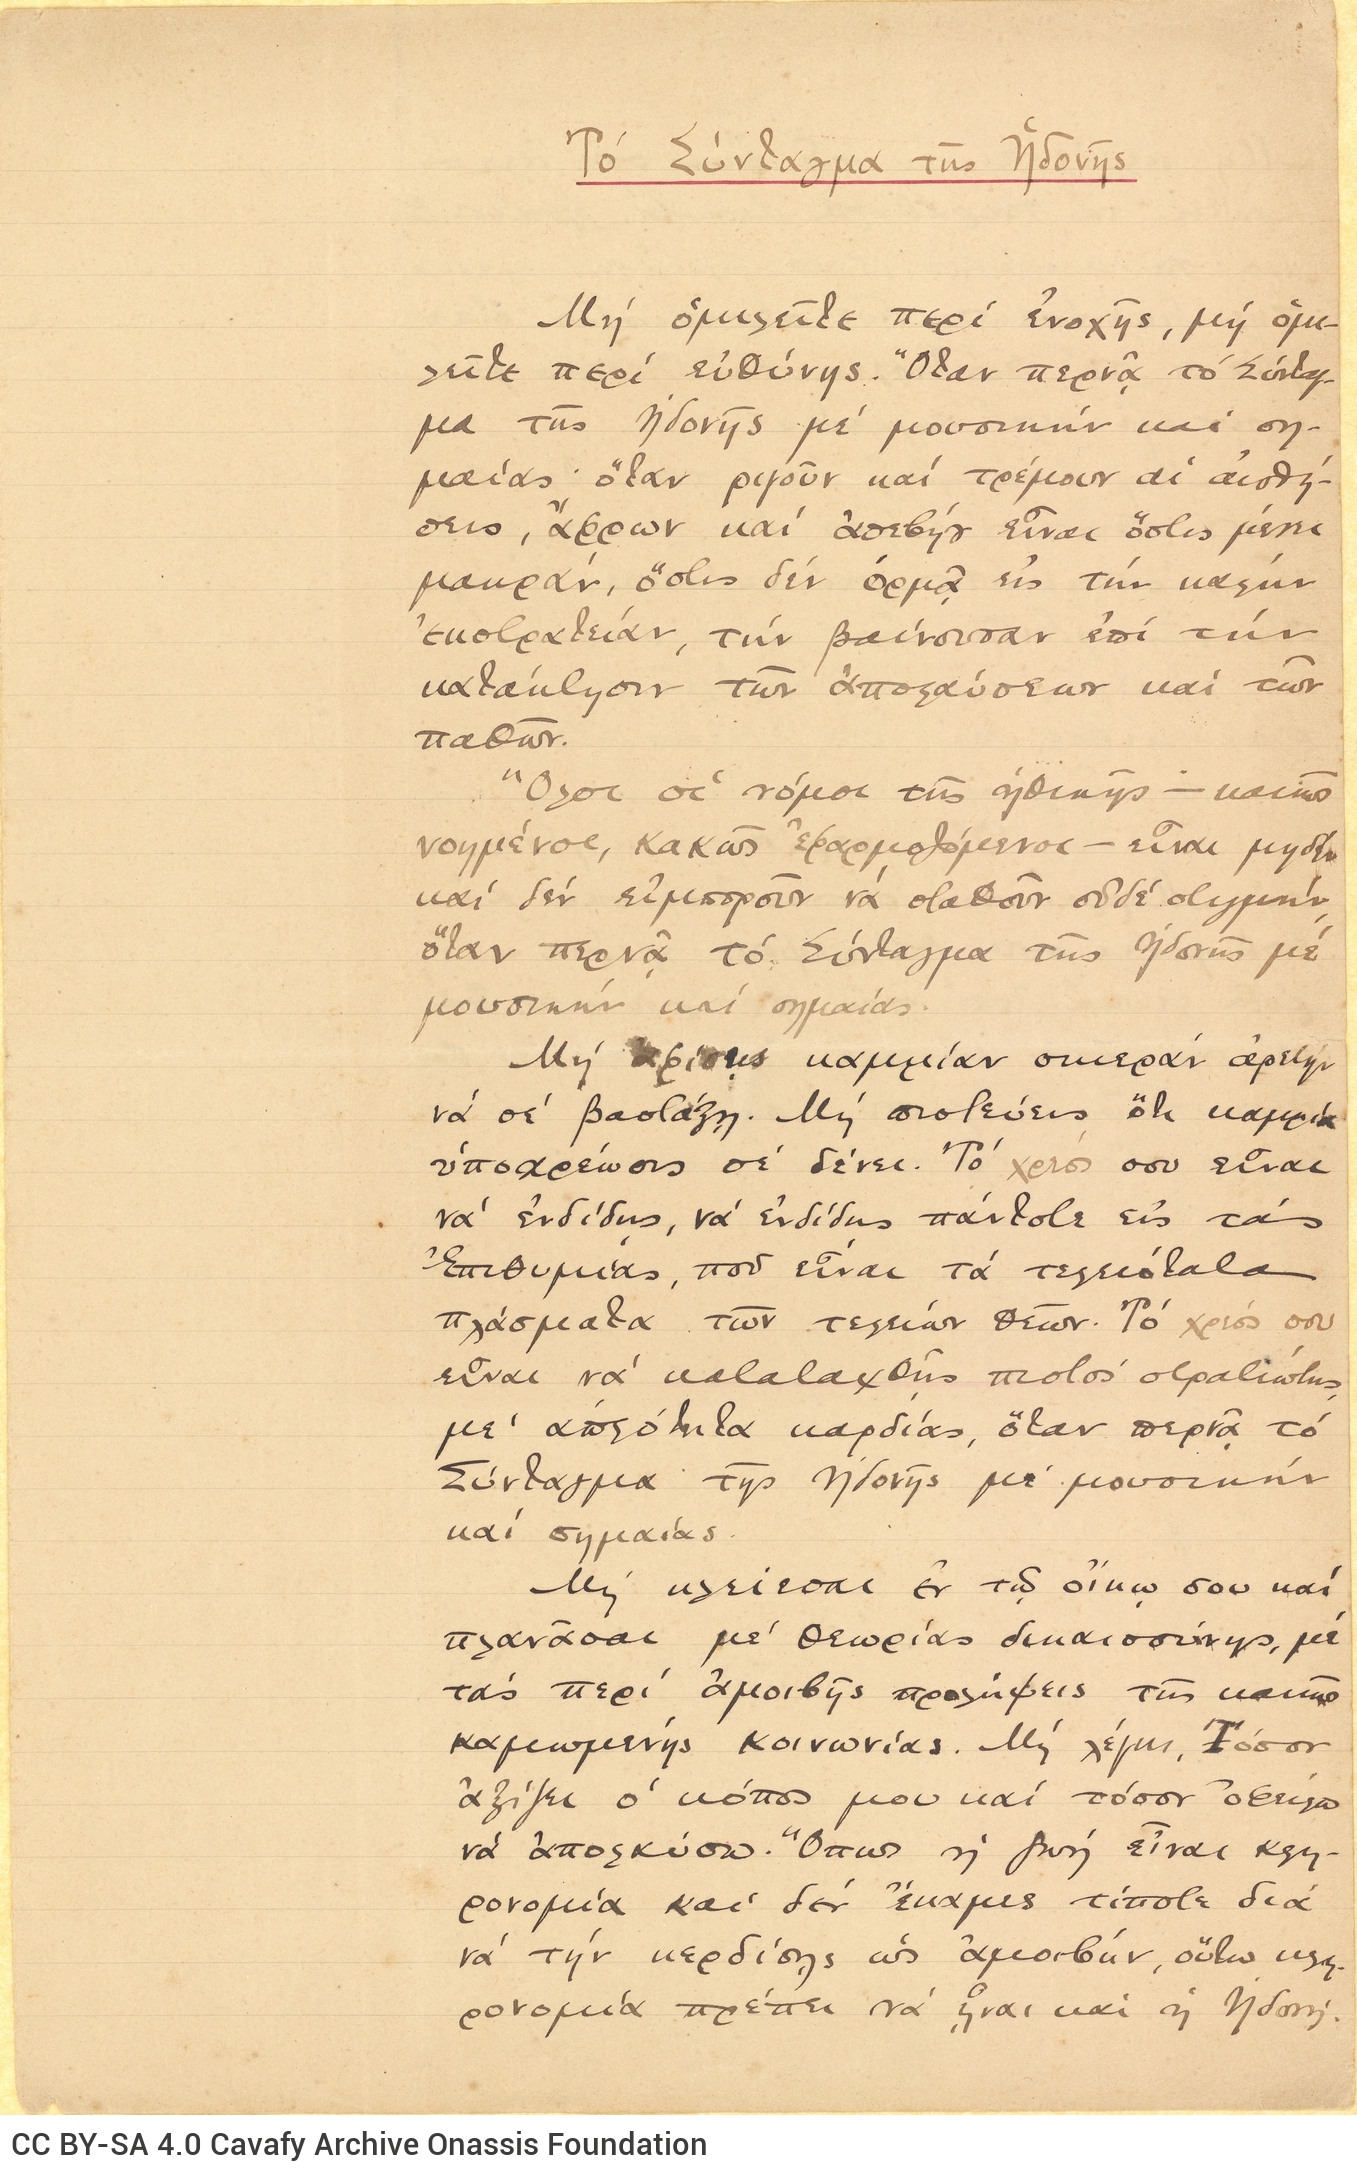 Τό Σύνταγμα τῆς Ἡδονῆς
Μή ὁμιλεῖτε περί ἐνοχῆς, μή ὁμι-
λεῖτε περί εὐθύνης. Ὅταν περνᾷ τό Σύνταγ-
μα τῆς Ἡδονῆς μέ μουσικήν καί ση-
μαίας· ὅταν ριγοῦν καί τρέμουν αἱ αἰσθή-
σεις, ἄφρων καί ἀσεβής εἶναι ὅστις μένει
μακράν, ὅστις δέν ὁρμᾷ εἰς τήν καλήν
ἐκστρατείαν, τήν βαίνουσαν ἐπί τήν
κατάκτησιν τῶν ἀπολαύσεων καί τῶν
παθῶν.
Ὅλοι οἱ νόμοι τῆς ἠθικῆς – κακῶς
νοημένοι, κακῶς ἐφαρμοζόμενοι – εἶναι μηδέν
καί δέν εἰμποροῦν νά σταθοῦν οὐδέ στιγμήν,
ὅταν περνᾷ τό Σύνταγμα τῆς Ἡδονῆς μέ
μουσικήν καί σημαίας.
Μή ἀφίσῃς καμμίαν σκιεράν ἀρετήν
νά σέ βαστάξῃ. Μή πιστεύεις ὅτι καμμία
ὑποχρέωσις σέ δένει. Τό χρέος σου εἶναι
νά ἐνδίδῃς, νά ἐνδίδῃς πάντοτε εἰς τάς
Ἐπιθυμίας, πού εἶναι τά τελειότατα
πλάσματα τῶν τελείων θεῶν. Τό χρέος σου
εἶναι νά καταταχθῇς πιστός στρατιώτης,
μέ ἁπλότητα καρδίας, ὅταν περνᾷ τό
Σύνταγμα τῆς Ἡδονῆς μέ μουσικήν
καί σημαίας.
Μή κλείεσαι ἐν τῷ οἴκῳ σου καί
πλανᾶσαι μέ θεωρίας δικαιοσύνης, μέ
τάς περί ἀμοιβῆς προλήψεις τῆς κακῶς
καμωμένης κοινωνίας. Μή λέγῃς, Τόσον
ἀξίζει ὁ κόπος μου καί τόσον ὀφείλω
νά ἀπολαύσω. Ὅπως ἡ ζωή εἶναι κλη-
ρονομία καί δέν ἔκαμες τίποτε διά
νά τήν κερδίσῃς ὡς ἀμοιβήν, οὕτω κλη-
ρονομία πρέπει νά ἦναι καί ἡ Ἡδονή.
CC BY-SA 4.0 Cavafy Archive Onassis Foundation